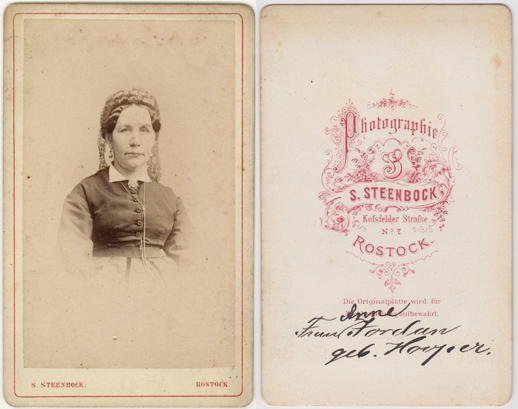 S. STEENBOCK. ROSTOCK.
Photographie
S
S. STEENBOCK
Kossfelder Straße
No 7
ROSTOCK.
Die Originalplatte wird für
aufbewahrt.
Anne
Frau Jordan
geb. Hooper.